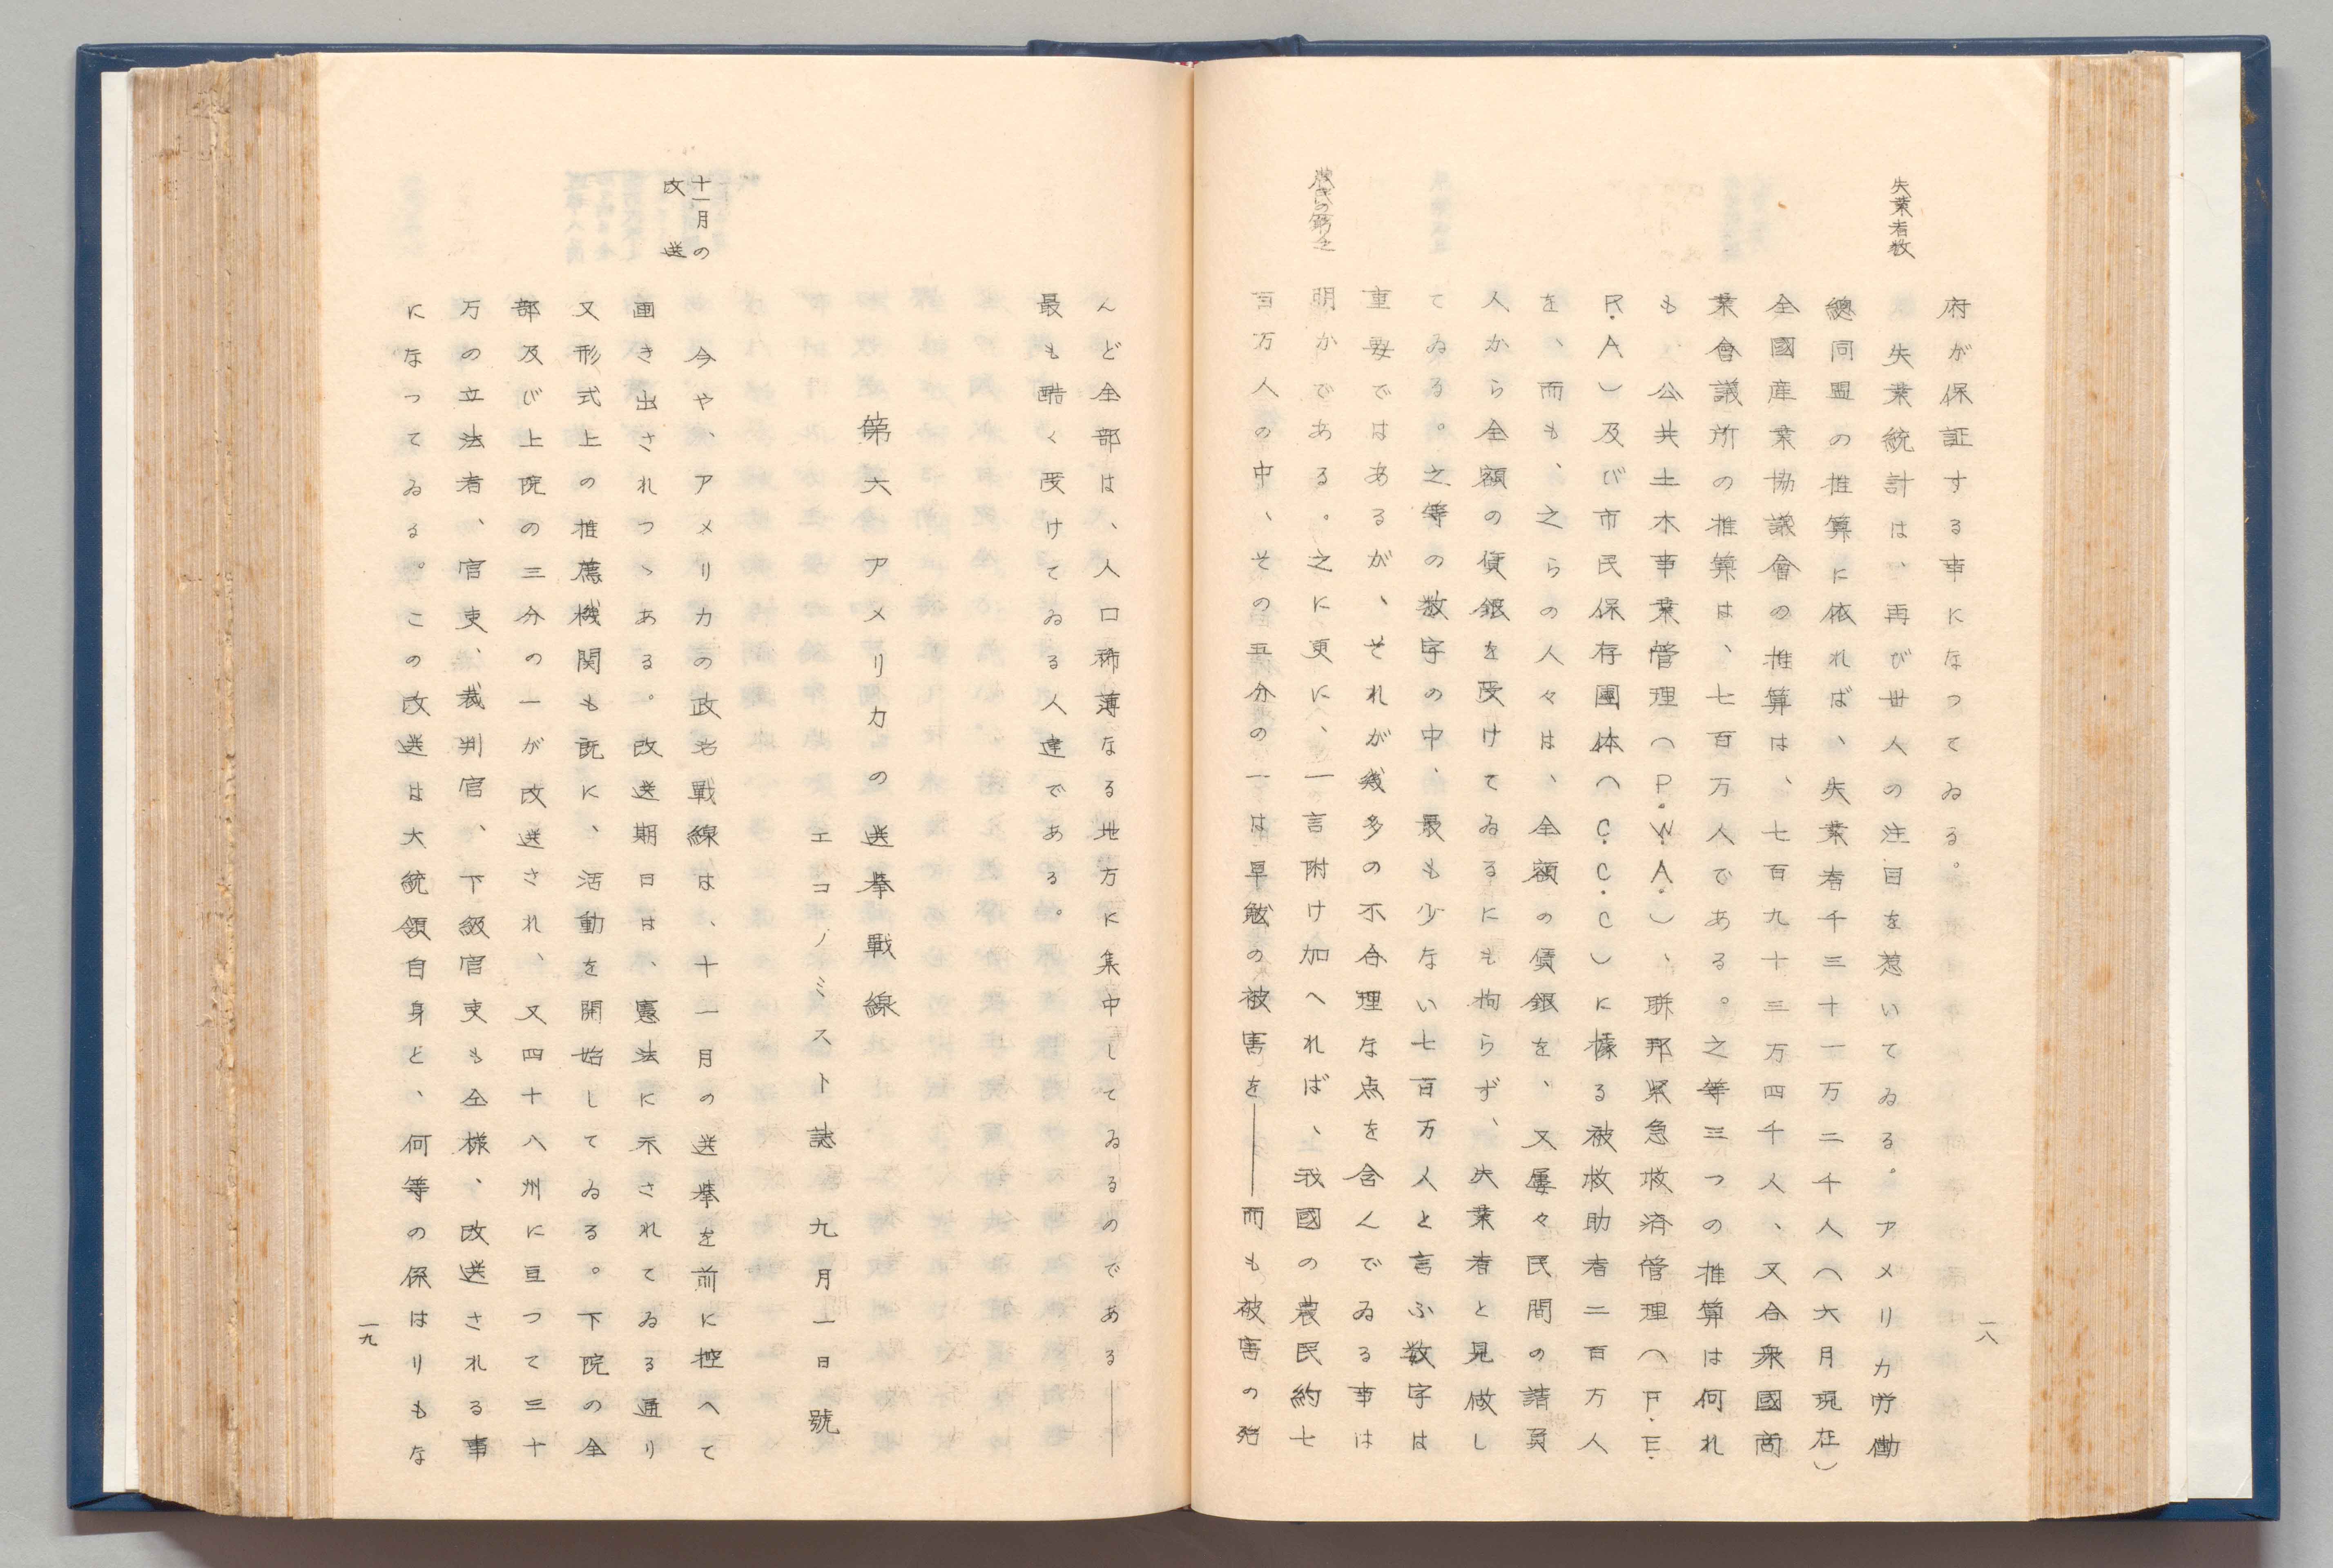 失業者数
府が保証する事になつてゐる。
失業統計は、再び世人の注目を惹いてゐる。アメリカ労働
總同盟の推算に依れば、失業者千三十一万二千人（六月現在）
全國産業協議會の推算は、七百九十三万四千人、又合衆國商
業會議所の推算は、七百万人である。之等三つの推算は何れ
も、公共土木事業管理（P.W.A.）、聯邦緊急救済管理（F.E.
R.A）及び市民保存團体（C.C.C）に據る被救助者二百万人
を、而も、之らの人々は、全額の賃銀を、又屡々民間の請負
人から全額の賃銀を受けてゐるにも拘らず、失業者と見做し
てゐる。之等の数字の中、最も少ない七百万人と言ふ数字は
重要ではあるが、それが幾多の不合理な点を含んでゐる事は
農民の窮乏
明かである。之に更に、一言附け加へれば、我國の農民約七
百万人の中、その五分の一は旱魃の被害を――而も被害の殆
一八
んど全部は、人口稀薄なる地方に集中してゐるのである――
最も酷く受けてゐる人達である。
第六 アメリカの選挙戦線
エコノミスト誌 九月一日號
十一月の
改選
今や、アメリカの政治戦線は、十一月の選挙を前に控へて
画き出されつゝある。改選期日は、憲法に示されてゐる通り
又形式上の推薦機関も既に、活動を開始してゐる。下院の全
部及び上院の三分の一が改選され、又四十八州に亘つて三十
万の立法者、官吏、裁判官、下級官吏も仝様、改選される事
になつてゐる。この改選は大統領自身と、何等の係はりもな
一九